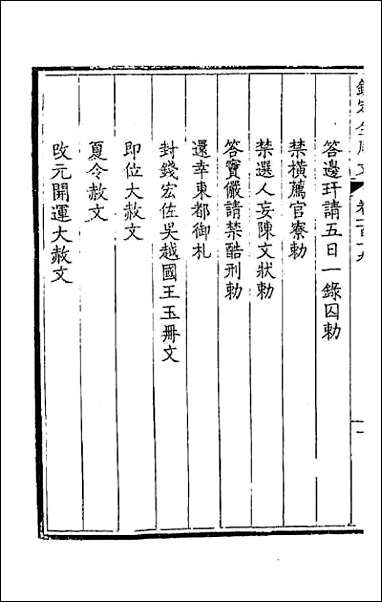 欽定全唐文 卷一百十九
答邊玕請五日一錄囚勅
禁橫薦官寮勅
禁選人妄陳文狀勅
答竇儼請禁酷刑勅
還幸東都御札
封錢宏佐吳越國王玉冊文
即位大赦文
夏令赦文
改元開運大赦文